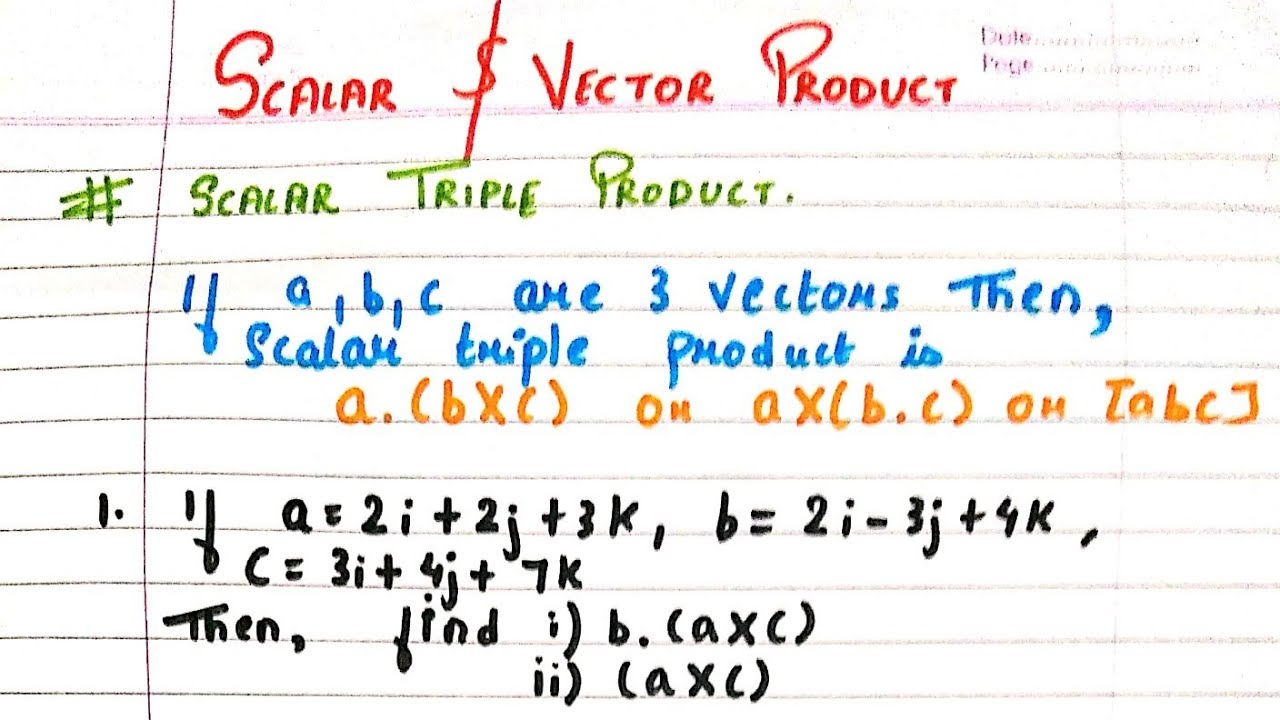 SCALAR & VECTOR PRODUCT
Date
Page
# SCALAR TRIPLE PRODUCT.
If a,b,c are 3 vectors Then,
Scalar triple product is
a.(bxc) or ax(b.c) or [abc]
1. If a=2i+2j+3k, b=2i-3j+4k,
c=3i+4j+7k
Then, find i) b.(axc)
ii) (axc)